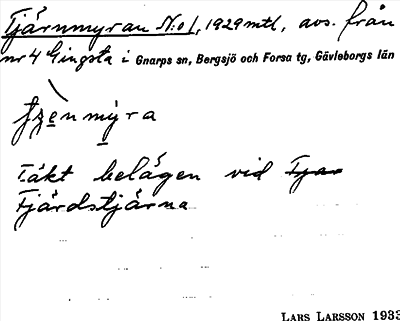 Tjärnmyran No 1, 1929 mtl, avs. från
nr 4 Gingsta i Gnarps sn, Bergsjö och Forsa tg, Gävleborgs län
Täkt belägen vid Tjar
Fjärdstjärna
LARS LARSSON 1933